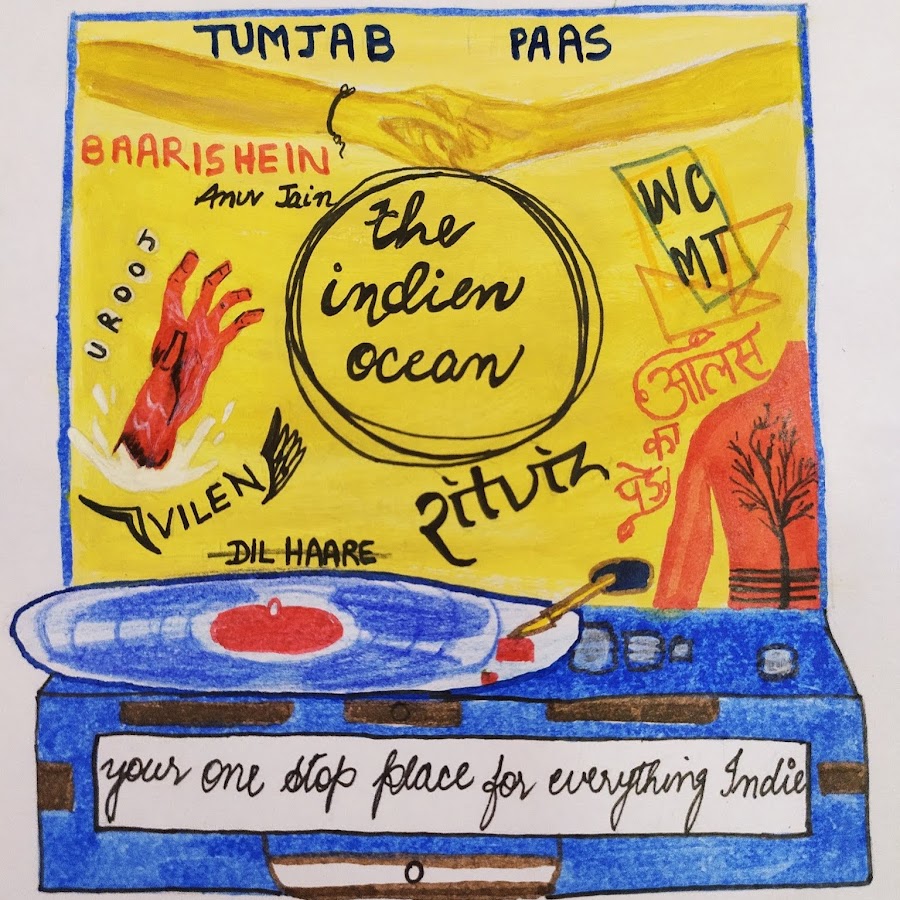 TUMJAB PAAS
BAARISHEIN
Anuv Jain
the
indien
ocean
WC
MT
UROOJ
आलस
का
पेड़
VILEN
ritviz
DIL HAARE
your one stop place for everything Indie